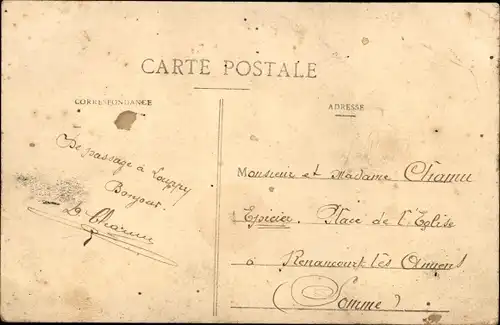 CARTE POSTALE
CORRESPONDANCE
De passage à
Bonjour.
ADRESSE
Monsieur et Madame Chamu
Epicier. Place de l'Eglise
à Renancourt-lès Amiens
(Somme)